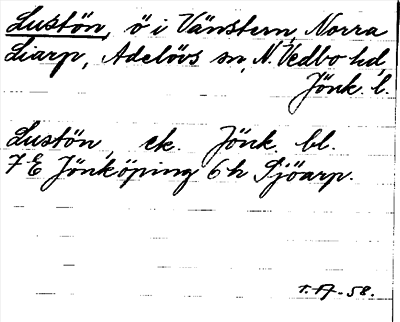 Lustön, ö i Vänstern, Norra
Liarp, Adelövs sn, N. Vedbo hd,
Jönk. l.
Lustön, ek. Jönk. bl.
7 E Jönköping 6 h Sjöarp.
58.